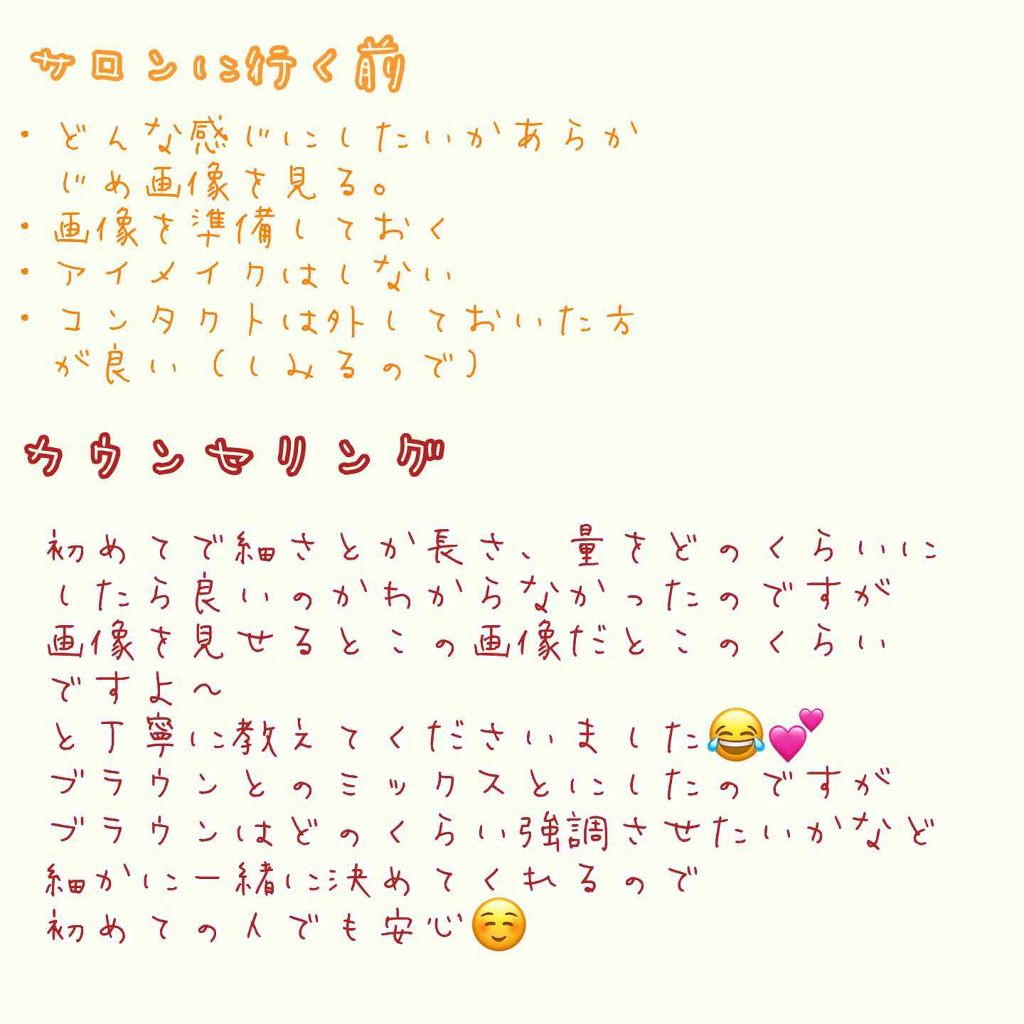 サロンに行く前
・どんな感じにしたいかあらか
じめ画像を見る。
・画像を準備しておく
・アイメイクはしない
・コンタクトは外しておいた方
が良い(しみるので)
カウンセリング
初めてで細さとか長さ、量をどのくらいに
したら良いのかわからなかったのですが
画像を見せるとこの画像だとこのくらい
ですよ〜
と丁寧に教えてくださいました😂💕
ブラウンとのミックスとにしたのですが
ブラウンはどのくらい強調させたいかなど
細かに一緒に決めてくれるので
初めての人でも安心☺️